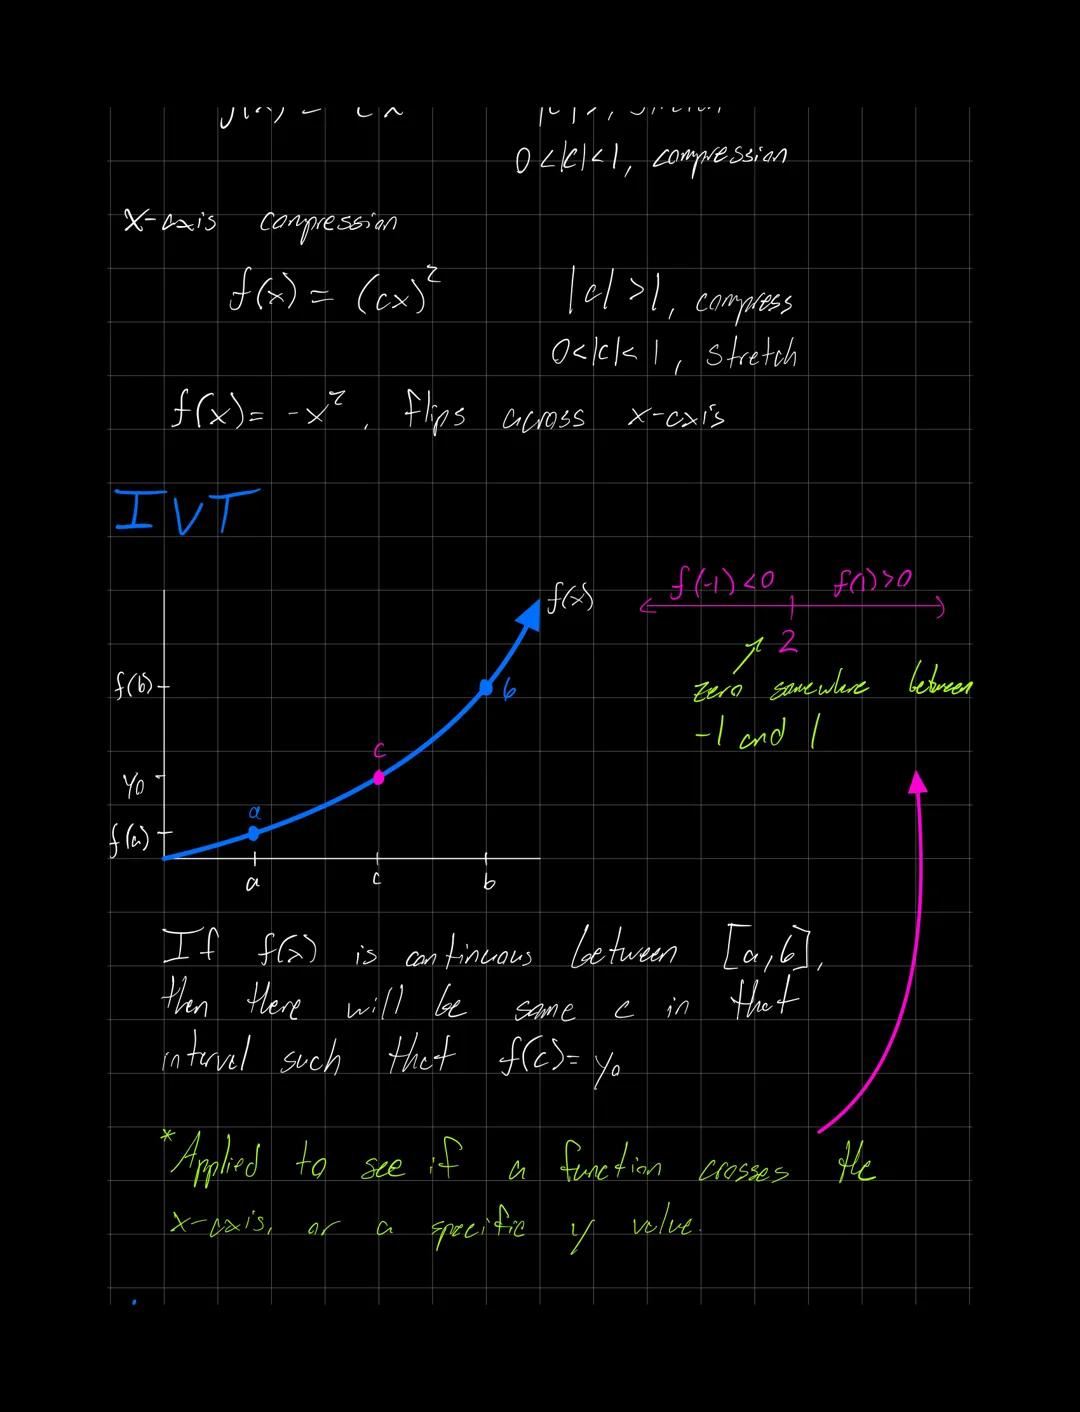 0<|c|<1, compression
x-axis compression
f(x) = (cx)²
|c| >1, compress
0<|c|<1, stretch
f(x)= -x², flips across x-axis
IVT
f(-1)<0 f(1)>0
2
zero somewhere between
-1 and 1
f(x)
f(b)
b
c
y₀
a
f(a)
a c b
If f(x) is continuous between [a,b],
then there will be some c in that
interval such that f(c)= y₀
*Applied to see if a function crosses the
x-axis, or a specific y value.